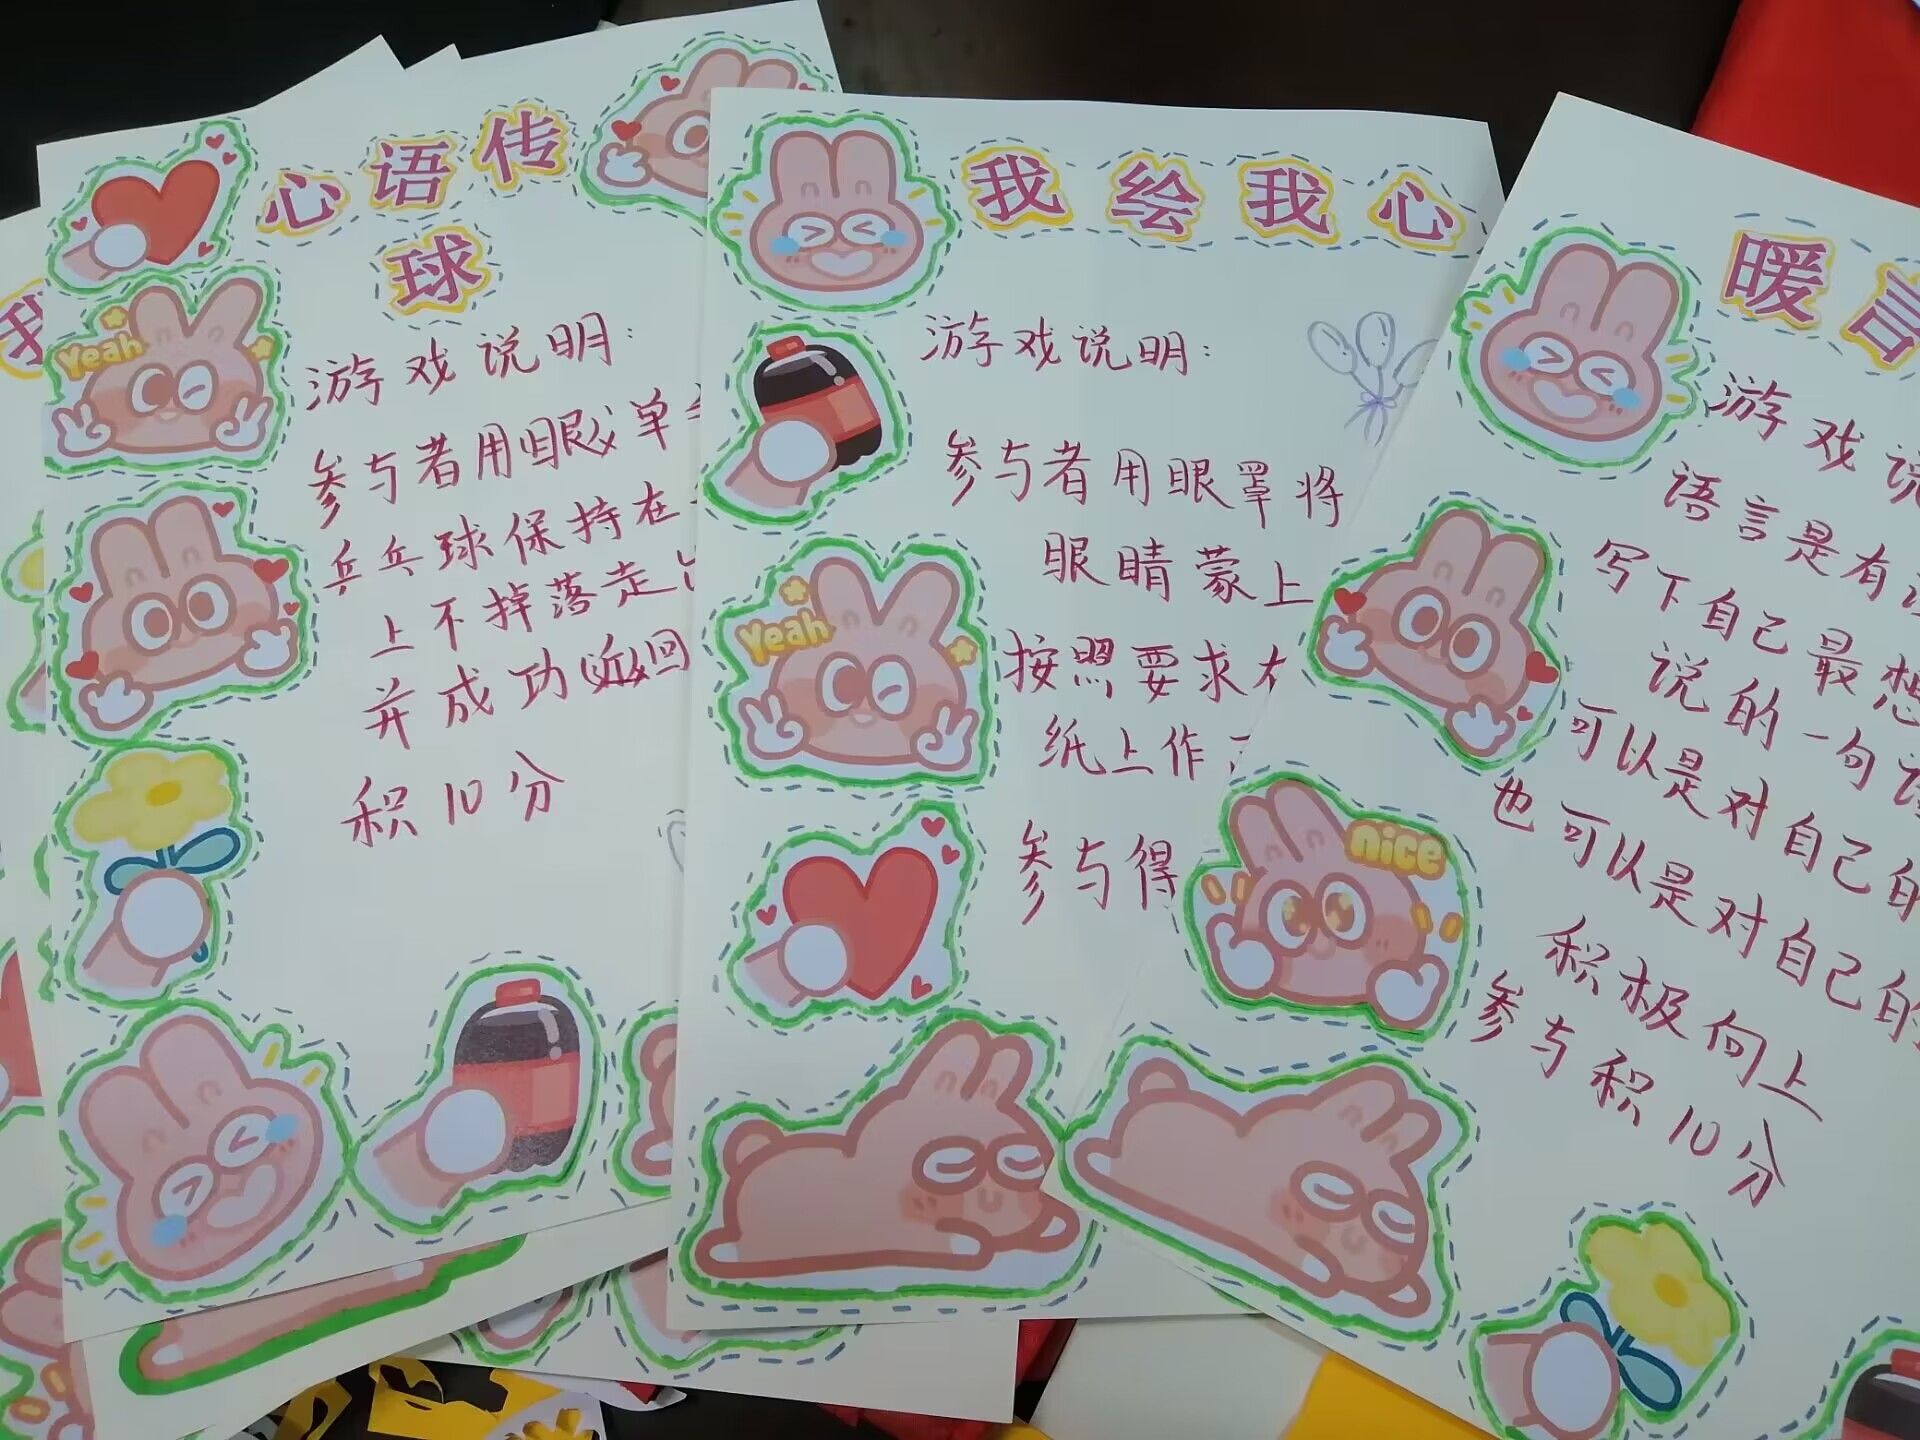 心语传
球
Yeah
游戏说明:
参与者用眼单
乒乓球保持在
上不掉落走
并成功返回
积10分
我绘我心
游戏说明:
参与者用眼罩将
眼睛蒙上
按照要求
纸上作
参与得
Yeah
暖言
游戏说
语言是有
写下自己最想
说的一句
可以是对自己的
也可以是对自己的
积极向上
参与积10分
nice
我